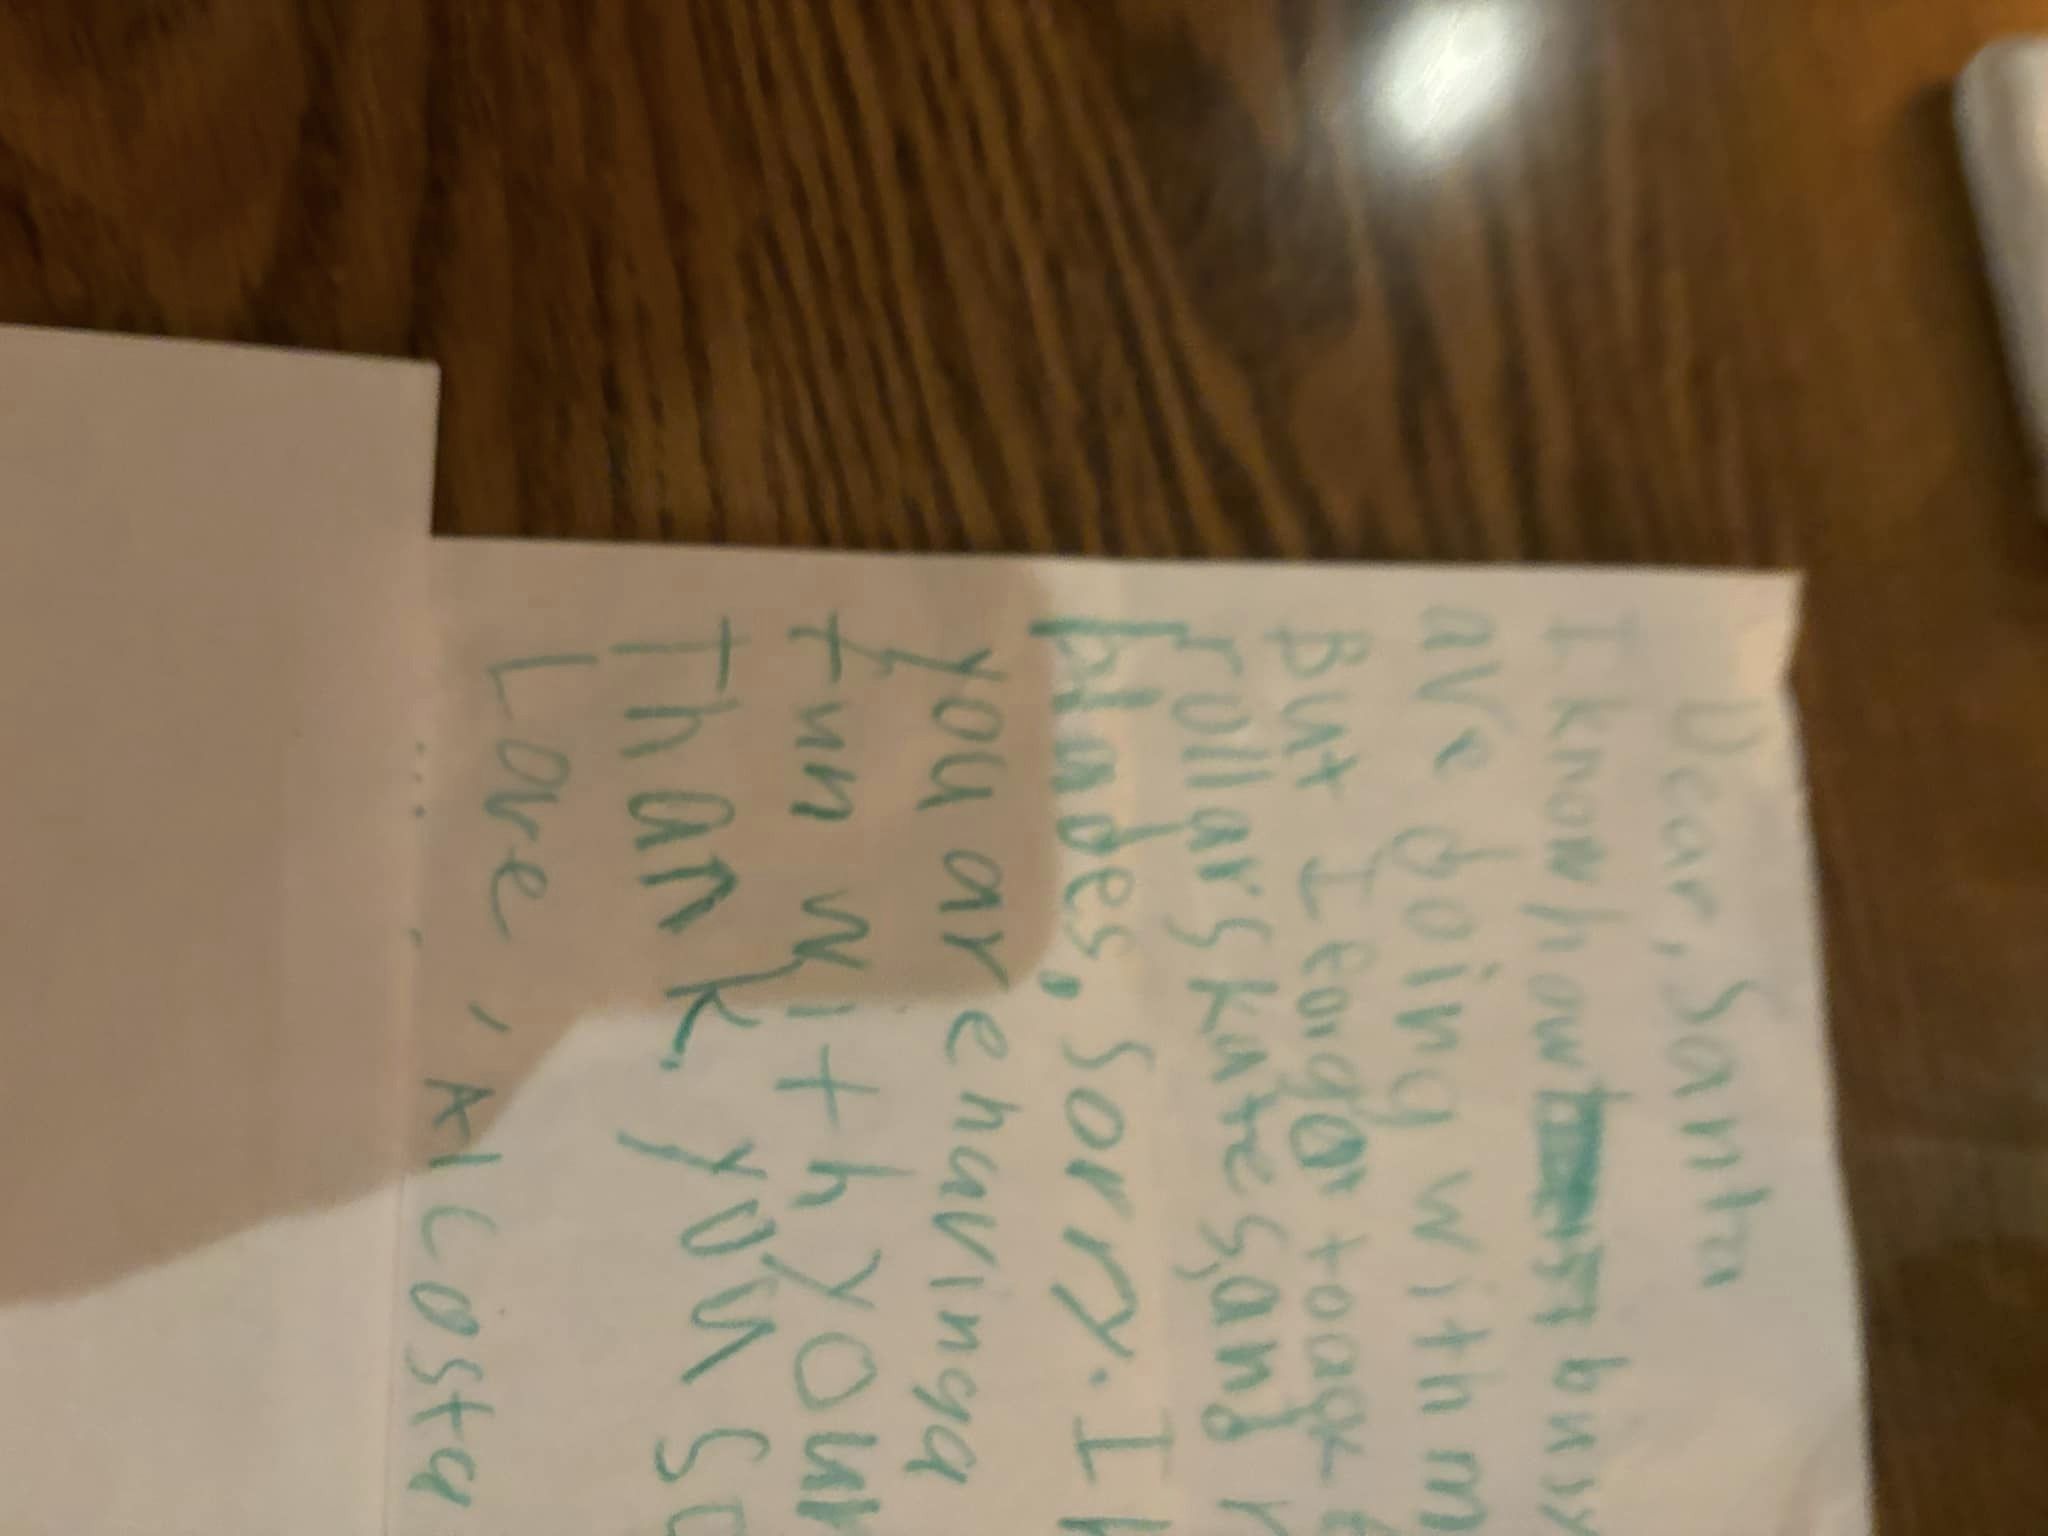 Dear, Santa
I know how busy
are doing with m
But I
rollarskates, and r
blades, Sorry. I h
you are having a
fun with your
Thank you so
Love, Al Costa